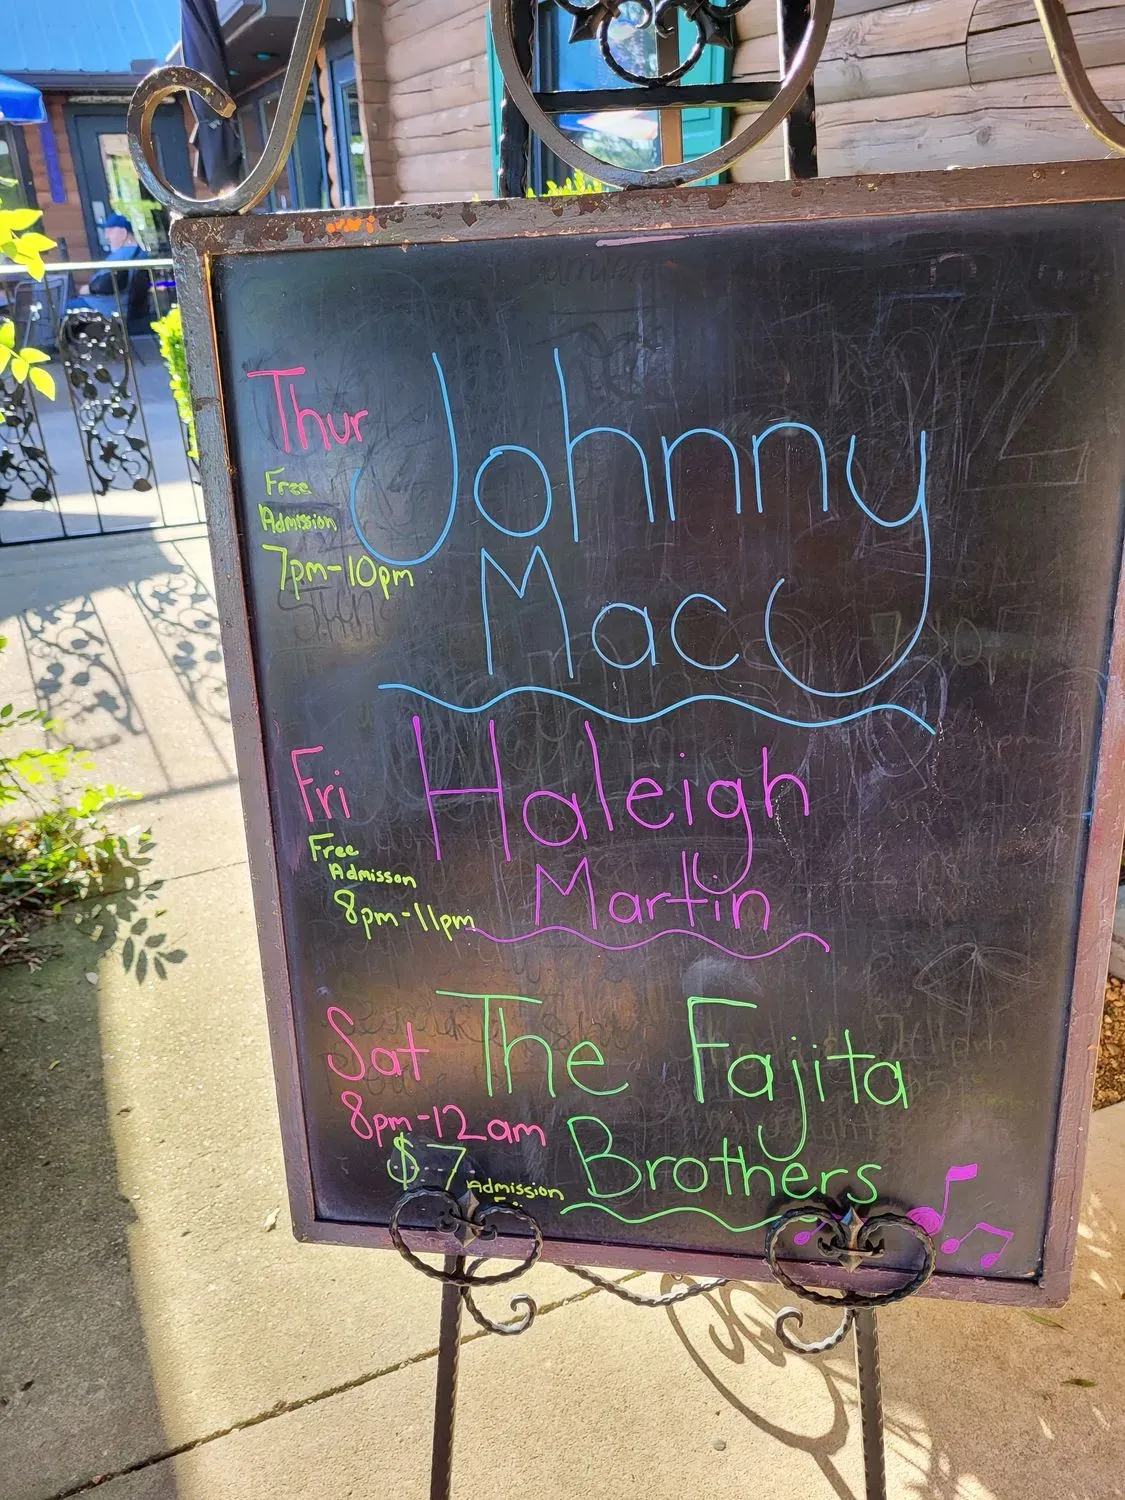 Thur
Free
Admission
7pm-10pm
Johnny
Mac
Fri
Free
Admisson
8pm-11pm
Haleigh
Martin
Sat
8pm-12am
$7
Admission
The Fajita
Brothers